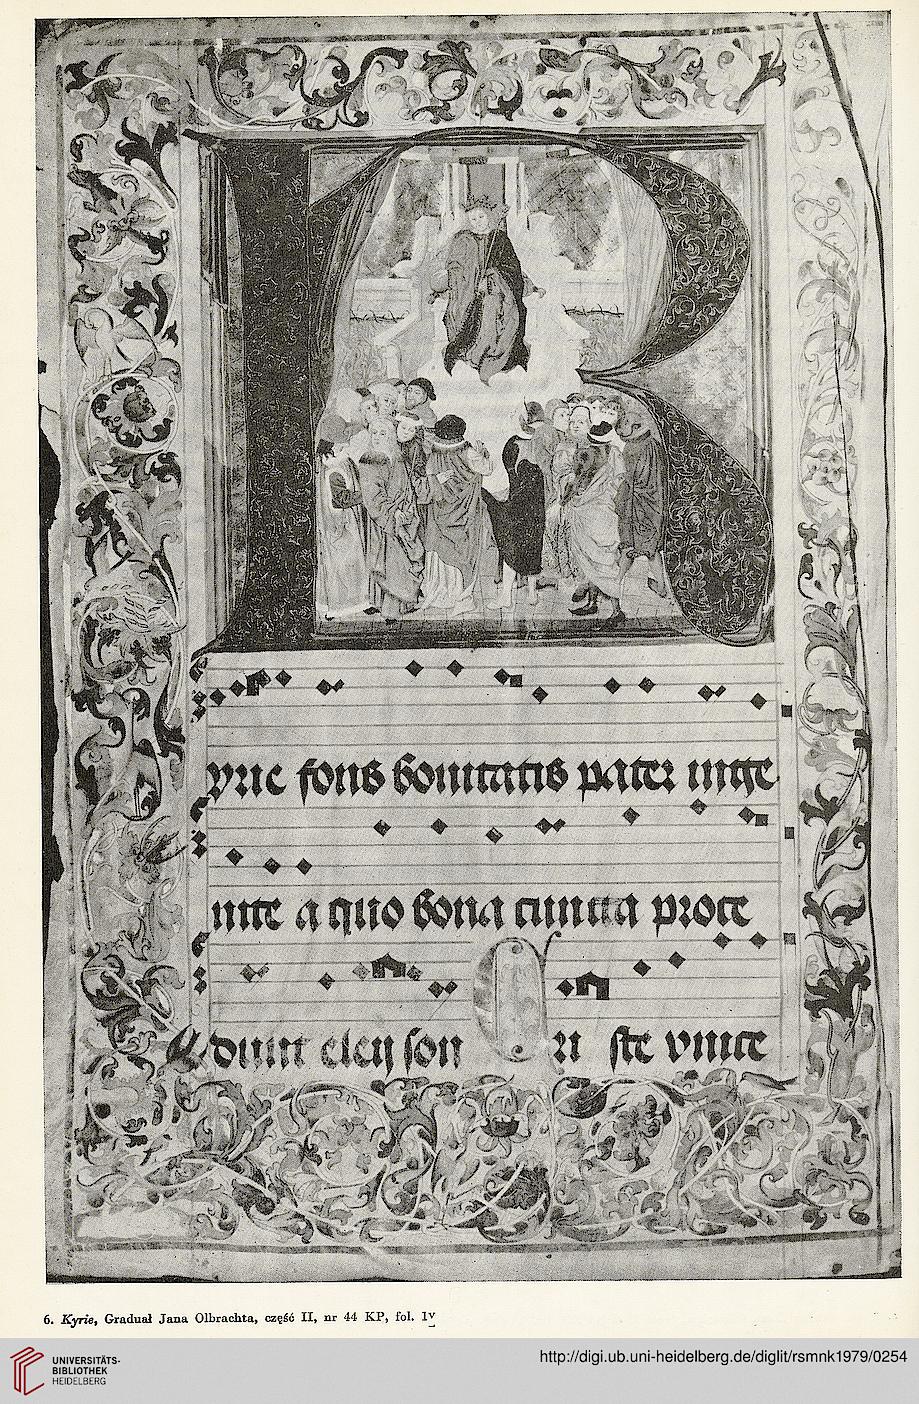 K
yrie fons bonitatis pater inge
nite a quo bona cuncta proce
dunt eleyson
ri ste vnice
6. Kyrie, Graduał Jana Olbrachta, część II, nr 44 KP, fol. 1v
UNIVERSITÄTS-
BIBLIOTHEK
HEIDELBERG
http://digi.ub.uni-heidelberg.de/diglit/rsmnk1979/0254